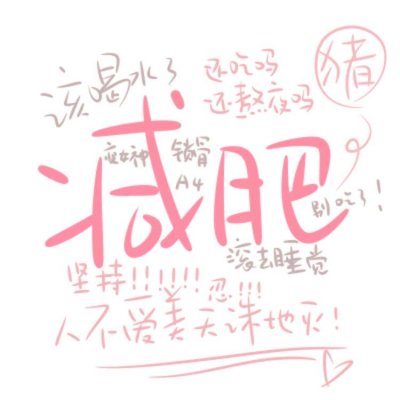 该喝水了
还吃吗
还熬夜吗
猪
减肥
变女神
锁骨
A4
别吃了!
滚去睡觉
坚持!!!!!!
忍!!!!
人不爱美天诛地灭!